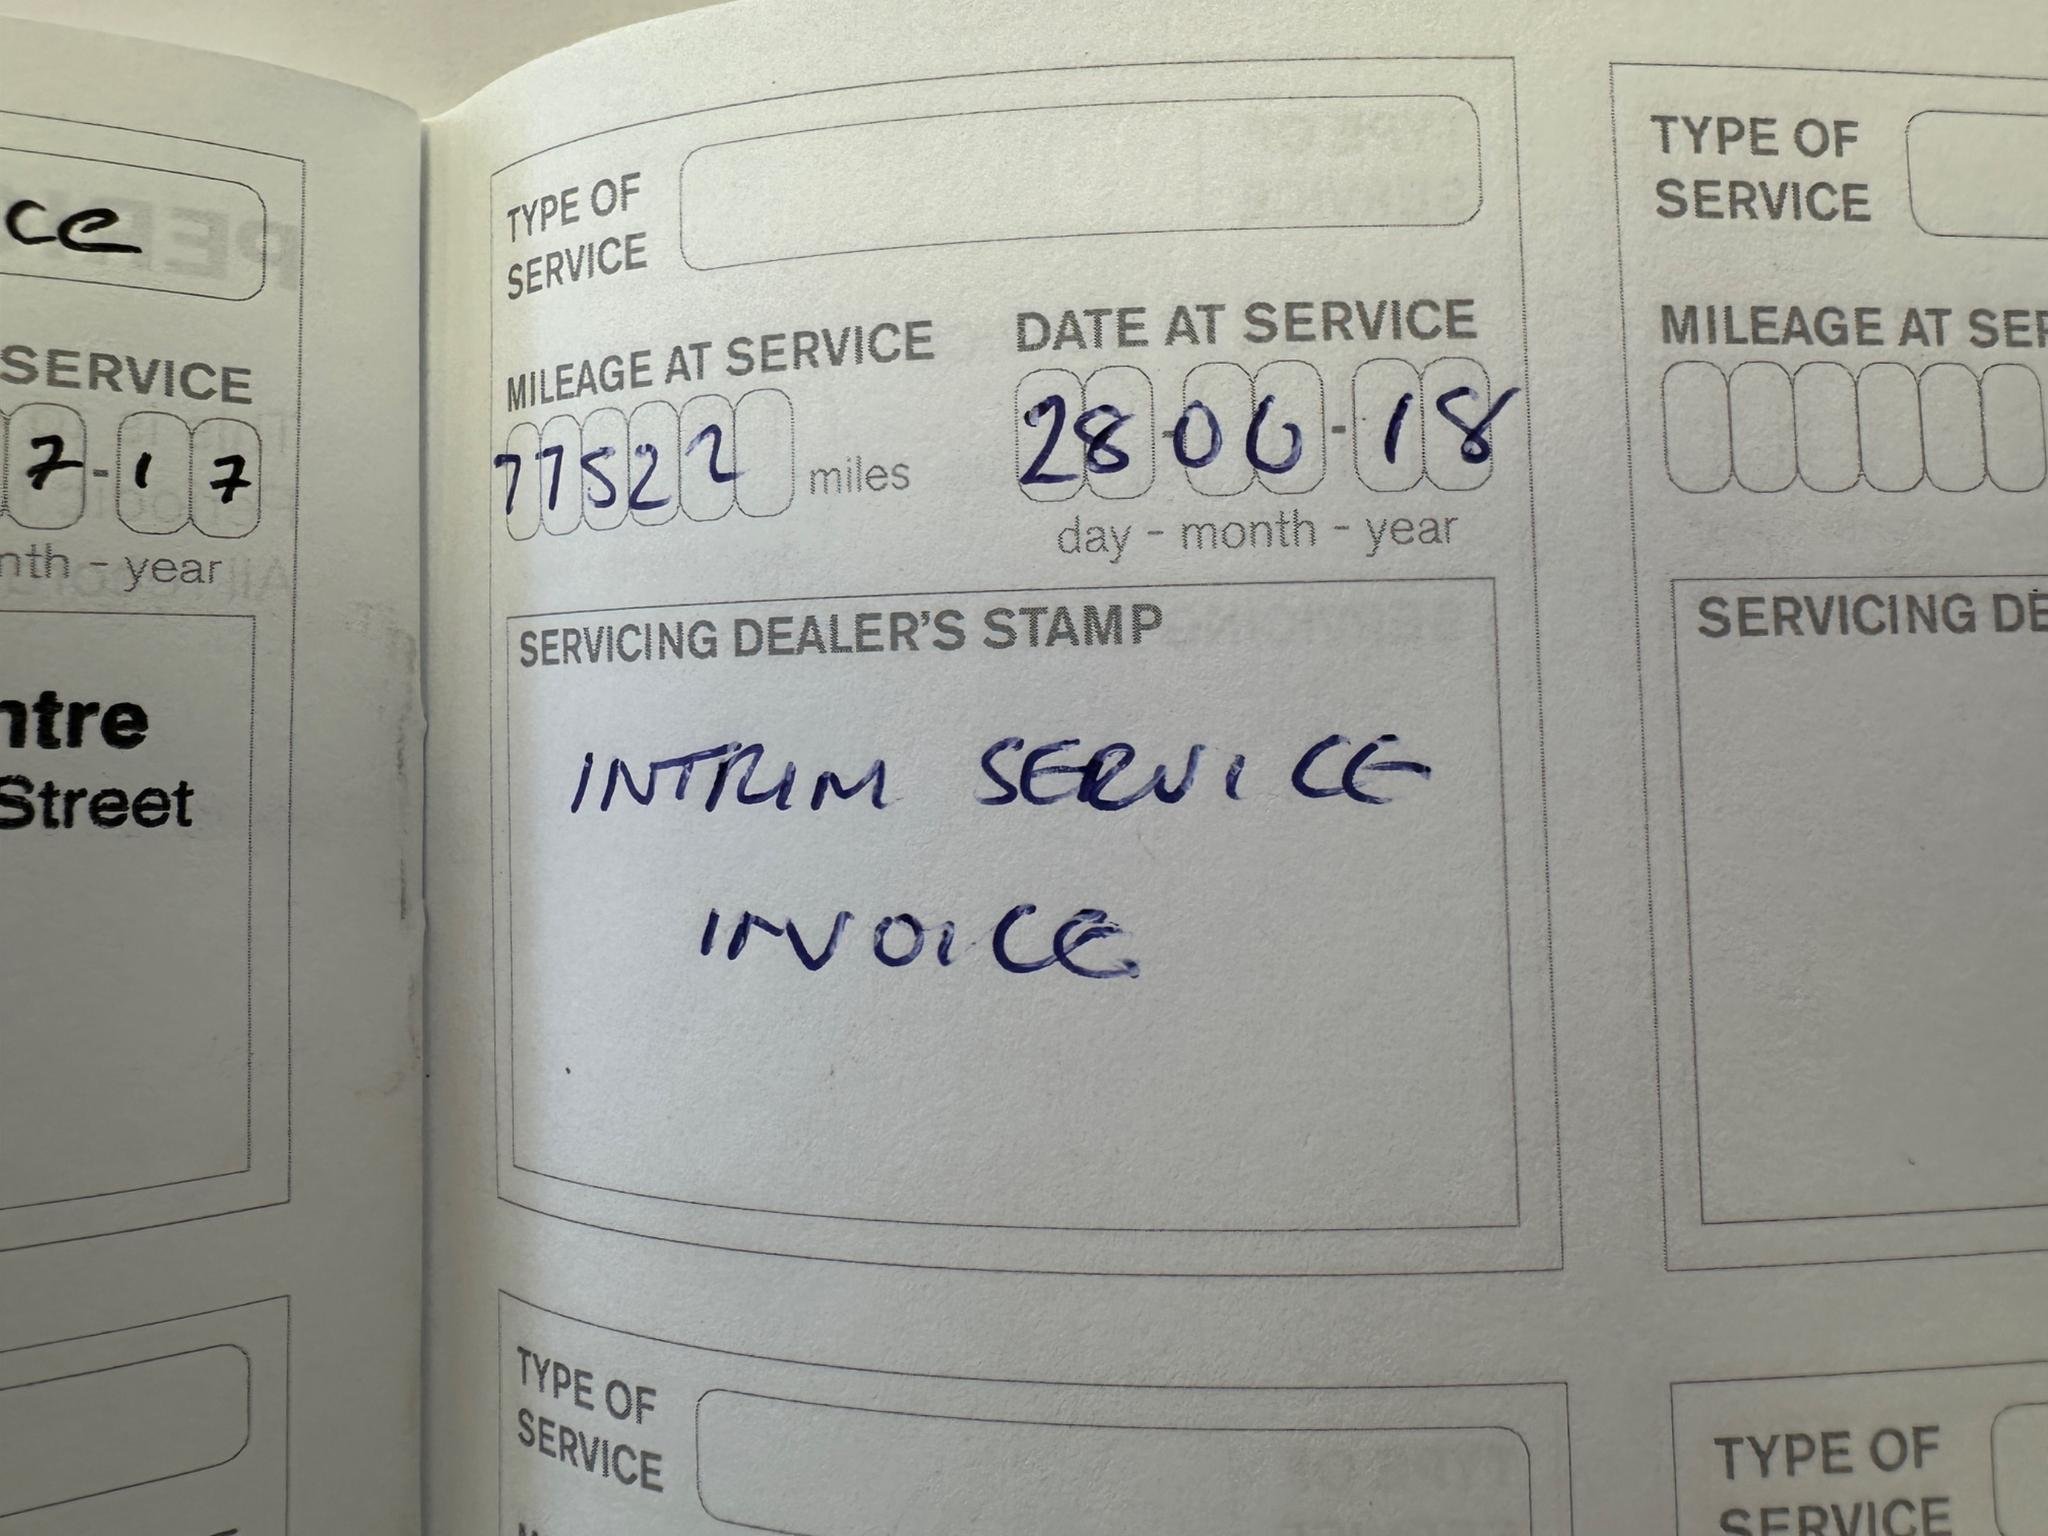 ce
SERVICE
7-17
nth - year
ntre
Street
TYPE OF
SERVICE
MILEAGE AT SERVICE
77522 miles
DATE AT SERVICE
28-06-18
day - month - year
SERVICING DEALER'S STAMP
INTRIM SERVICE
INVOICE
TYPE OF
SERVICE
TYPE OF
SERVICE
MILEAGE AT SER
SERVICING DE
TYPE OF
SERVICE